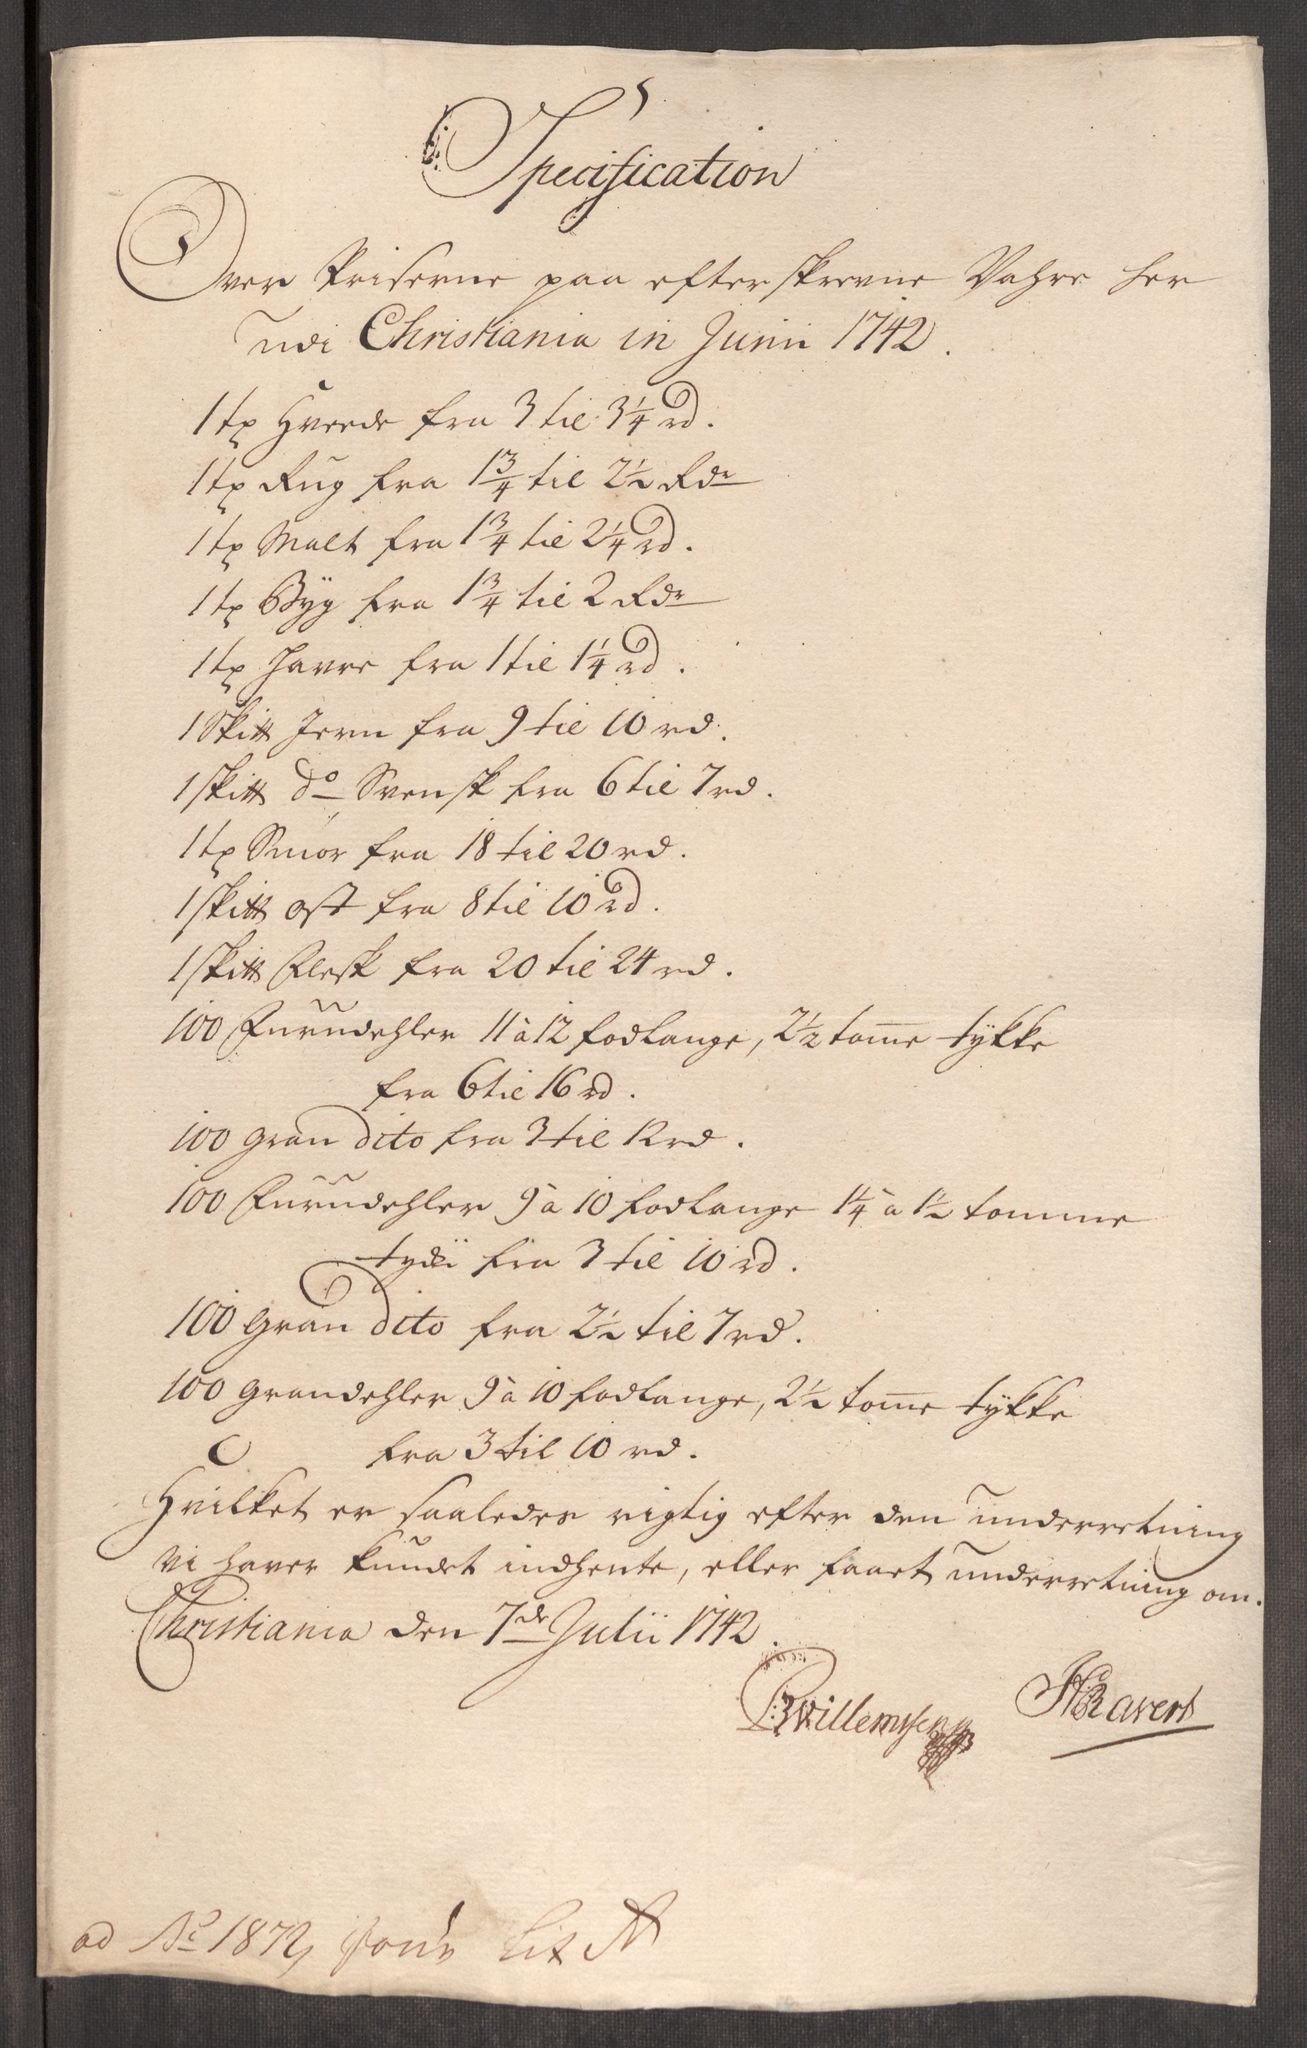 Specification
Over Priserne paa efterskrevne Vahre her
udi Christiania in Junii 1742.
1 tø Hveede fra 3 til 3 1/4 rd.
1 tø Rug fra 1 3/4 til 2 1/2 Rdr
1 tø Malt fra 1 3/4 til 2 1/4 rd.
1 tø Byg fra 1 3/4 til 2 Rdr
1 tø Havre fra 1 til 1 1/4 rd.
1 Skitt Jern fra 9 til 10 rd.
1 skitt do Svensk fra 6 til 7 rd.
1 tø Smör fra 18 til 20 rd.
1 skitt ost fra 8 til 10 rd.
1 skitt Flesk fra 20 til 24 rd.
100 Furudehler 11 à 12 fodlange, 2 1/2 tome tykke
fra 6 til 16 rd.
100 gran dito fra 3 til 12 rd.
100 Furudehler 9 à 10 fodlange 1 1/4 à 1 1/2 tomme
fra 3 til 10 rd.
100 Gran dito fra 2 1/2 til 7 rd.
100 grandehler 9 à 10 fodlange, 2 1/2 tome tykke
fra 3 til 10 rd.
Hvilket er saaledes rigtig efter den underretning
vi haver kundet indhente, eller faaet underretning om.
Christiania den 7de Julii 1742.
Willemsen HRavert
ad No 1872, Lit A